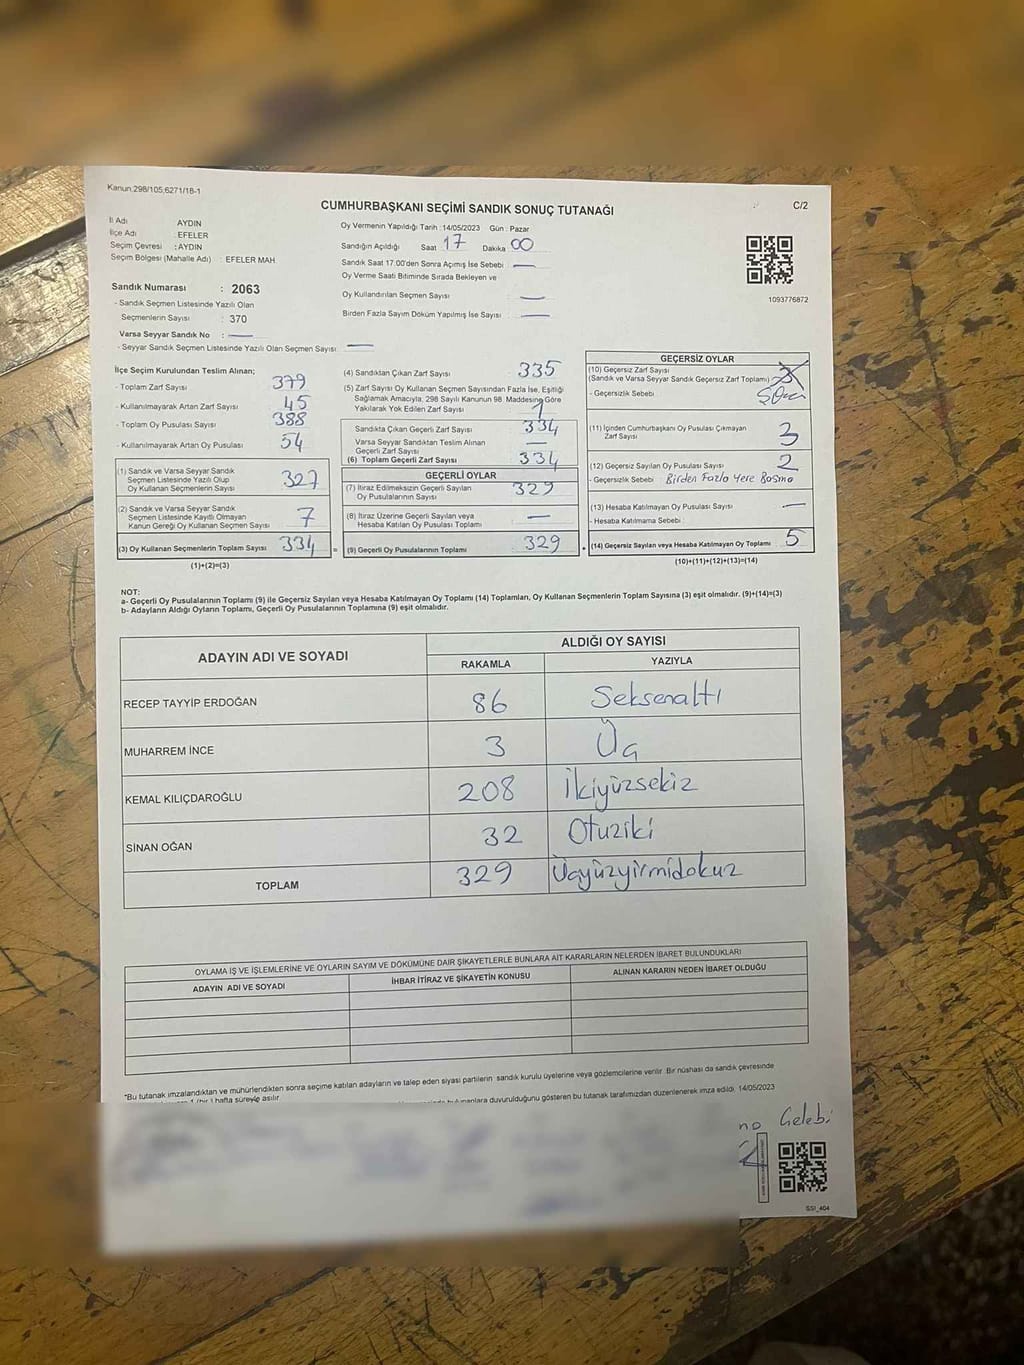 Kanun,298/105,6271/18-1
CUMHURBAŞKANI SEÇİMİ SANDIK SONUÇ TUTANAĞI
C/2
İl Adı AYDIN
İlçe Adı : EFELER
Seçim Çevresi : AYDIN
Seçim Bölgesi (Mahalle Adı) : EFELER MAH.
Oy Vermenin Yapıldığı Tarih :14/05/2023 Gün : Pazar
Sandığın Açıldığı Saat 17 Dakika 00
Sandık Saat 17:00'den Sonra Açımış İse Sebebi —
Oy Verme Saati Bitiminde Sırada Bekleyen ve
Oy Kullandırılan Seçmen Sayısı —
Birden Fazla Sayım Döküm Yapılmış İse Sayısı : —
1093776872
Sandık Numarası : 2063
- Sandık Seçmen Listesinde Yazılı Olan
Seçmenlerin Sayısı : 370
Varsa Seyyar Sandık No : —
- Seyyar Sandık Seçmen Listesinde Yazılı Olan Seçmen Sayısı : —
İlçe Seçim Kurulundan Teslim Alınan;
- Toplam Zarf Sayısı 379
- Kullanılmayarak Artan Zarf Sayısı 45
- Toplam Oy Pusulası Sayısı 388
- Kullanılmayarak Artan Oy Pusulası 54
(1) Sandık ve Varsa Seyyar Sandık
Seçmen Listesinde Yazılı Olup
Oy Kullanan Seçmenlerin Sayısı 327
(2) Sandık ve Varsa Seyyar Sandık
Seçmen Listesinde Kayıtlı Olmayan
Kanun Gereği Oy Kullanan Seçmen Sayısı 7
(3) Oy Kullanan Seçmenlerin Toplam Sayısı 334
(1)+(2)=(3)
(4) Sandıktan Çıkan Zarf Sayısı 335
(5) Zarf Sayısı Oy Kullanan Seçmen Sayısından Fazla İse, Eşitliği
Sağlamak Amacıyla, 298 Sayılı Kanunun 98. Maddesine Göre
Yakılarak Yok Edilen Zarf Sayısı 1
Sandıkta Çıkan Geçerli Zarf Sayısı 334
Varsa Seyyar Sandıktan Teslim Alınan
Geçerli Zarf Sayısı —
(6) Toplam Geçerli Zarf Sayısı 334
GEÇERLİ OYLAR
(7) İtiraz Edilmeksizin Geçerli Sayılan
Oy Pusulalarının Sayısı 329
(8) İtiraz Üzerine Geçerli Sayılan veya
Hesaba Katılan Oy Pusulası Toplamı —
= (9) Geçerli Oy Pusulalarının Toplamı 329
GEÇERSİZ OYLAR
(10) Geçersiz Zarf Sayısı
(Sandık ve Varsa Seyyar Sandık Geçersiz Zarf Toplamı)
- Geçersizlik Sebebi
(11) İçinden Cumhurbaşkanı Oy Pusulası Çıkmayan
Zarf Sayısı 3
(12) Geçersiz Sayılan Oy Pusulası Sayısı 2
- Geçersizlik Sebebi Birden Fazla Yere Basma
(13) Hesaba Katılmayan Oy Pusulası Sayısı —
- Hesaba Katılmama Sebebi :
+ (14) Geçersiz Sayılan veya Hesaba Katılmayan Oy Toplamı 5
(10)+(11)+(12)+(13)=(14)
NOT:
a- Geçerli Oy Pusulalarının Toplamı (9) ile Geçersiz Sayılan veya Hesaba Katılmayan Oy Toplamı (14) Toplamları, Oy Kullanan Seçmenlerin Toplam Sayısına (3) eşit olmalıdır. (9)+(14)=(3)
b- Adayların Aldığı Oyların Toplamı, Geçerli Oy Pusulalarının Toplamına (9) eşit olmalıdır.
ADAYIN ADI VE SOYADI ALDIĞI OY SAYISI
RAKAMLA YAZIYLA
RECEP TAYYİP ERDOĞAN 86 Seksenaltı
MUHARREM İNCE 3 Üç
KEMAL KILIÇDAROĞLU 208 İkiyüzsekiz
SİNAN OĞAN 32 Otuziki
TOPLAM 329 Üçyüzyirmidokuz
OYLAMA İŞ VE İŞLEMLERİNE VE OYLARIN SAYIM VE DÖKÜMÜNE DAİR ŞİKAYETLERLE BUNLARA AİT KARARLARIN NELERDEN İBARET BULUNDUKLARI
ADAYIN ADI VE SOYADI İHBAR İTİRAZ VE ŞİKAYETİN KONUSU ALINAN KARARIN NEDEN İBARET OLDUĞU
*Bu tutanak imzalandıktan ve mühürlendikten sonra seçime katılan adayların ve talep eden siyasi partilerin sandık kurulu üyelerine veya gözlemcilerine verilir. Bir nüshası da sandık çevresinde
1 (bir) hafta süreyle asılır.
duyurulduğunu gösteren bu tutanak tarafımızdan düzenlenerek imza edildi. 14/05/2023
no Çelebi
SSI_404